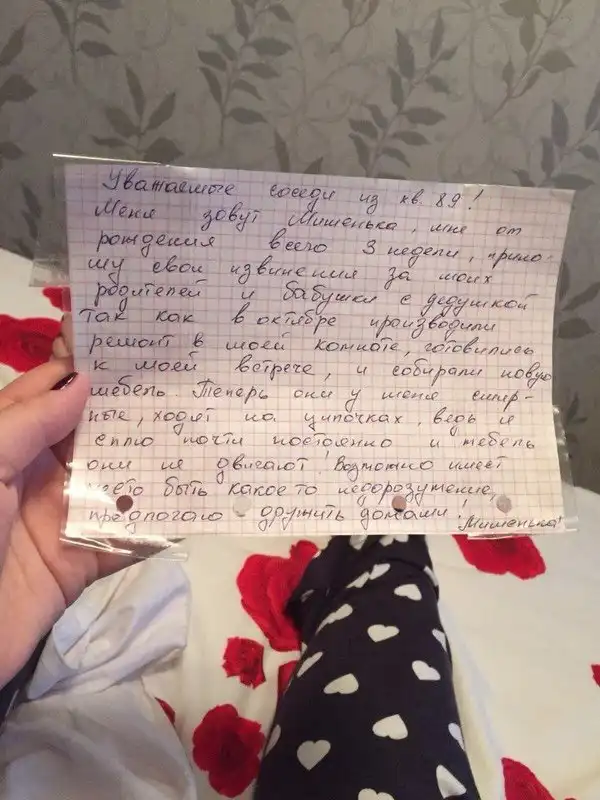 Уважаемые соседи из кв. 89!
Меня зовут Мишенька, мне от
рождения всего 3 недели, прино-
шу свои извинения за моих
родителей и бабушки с дедушкой
Так как в октябре производили
ремонт в моей комнате, готовились
к моей встрече, и собирали новую
мебель. Теперь они у меня смир-
ные, ходят на цыпочках, ведь я
сплю почти постоянно и мебель
они не двигают! Возможно имеет
место быть какое то недоразумение,
предлогаю дружить домами.
Мишенька!